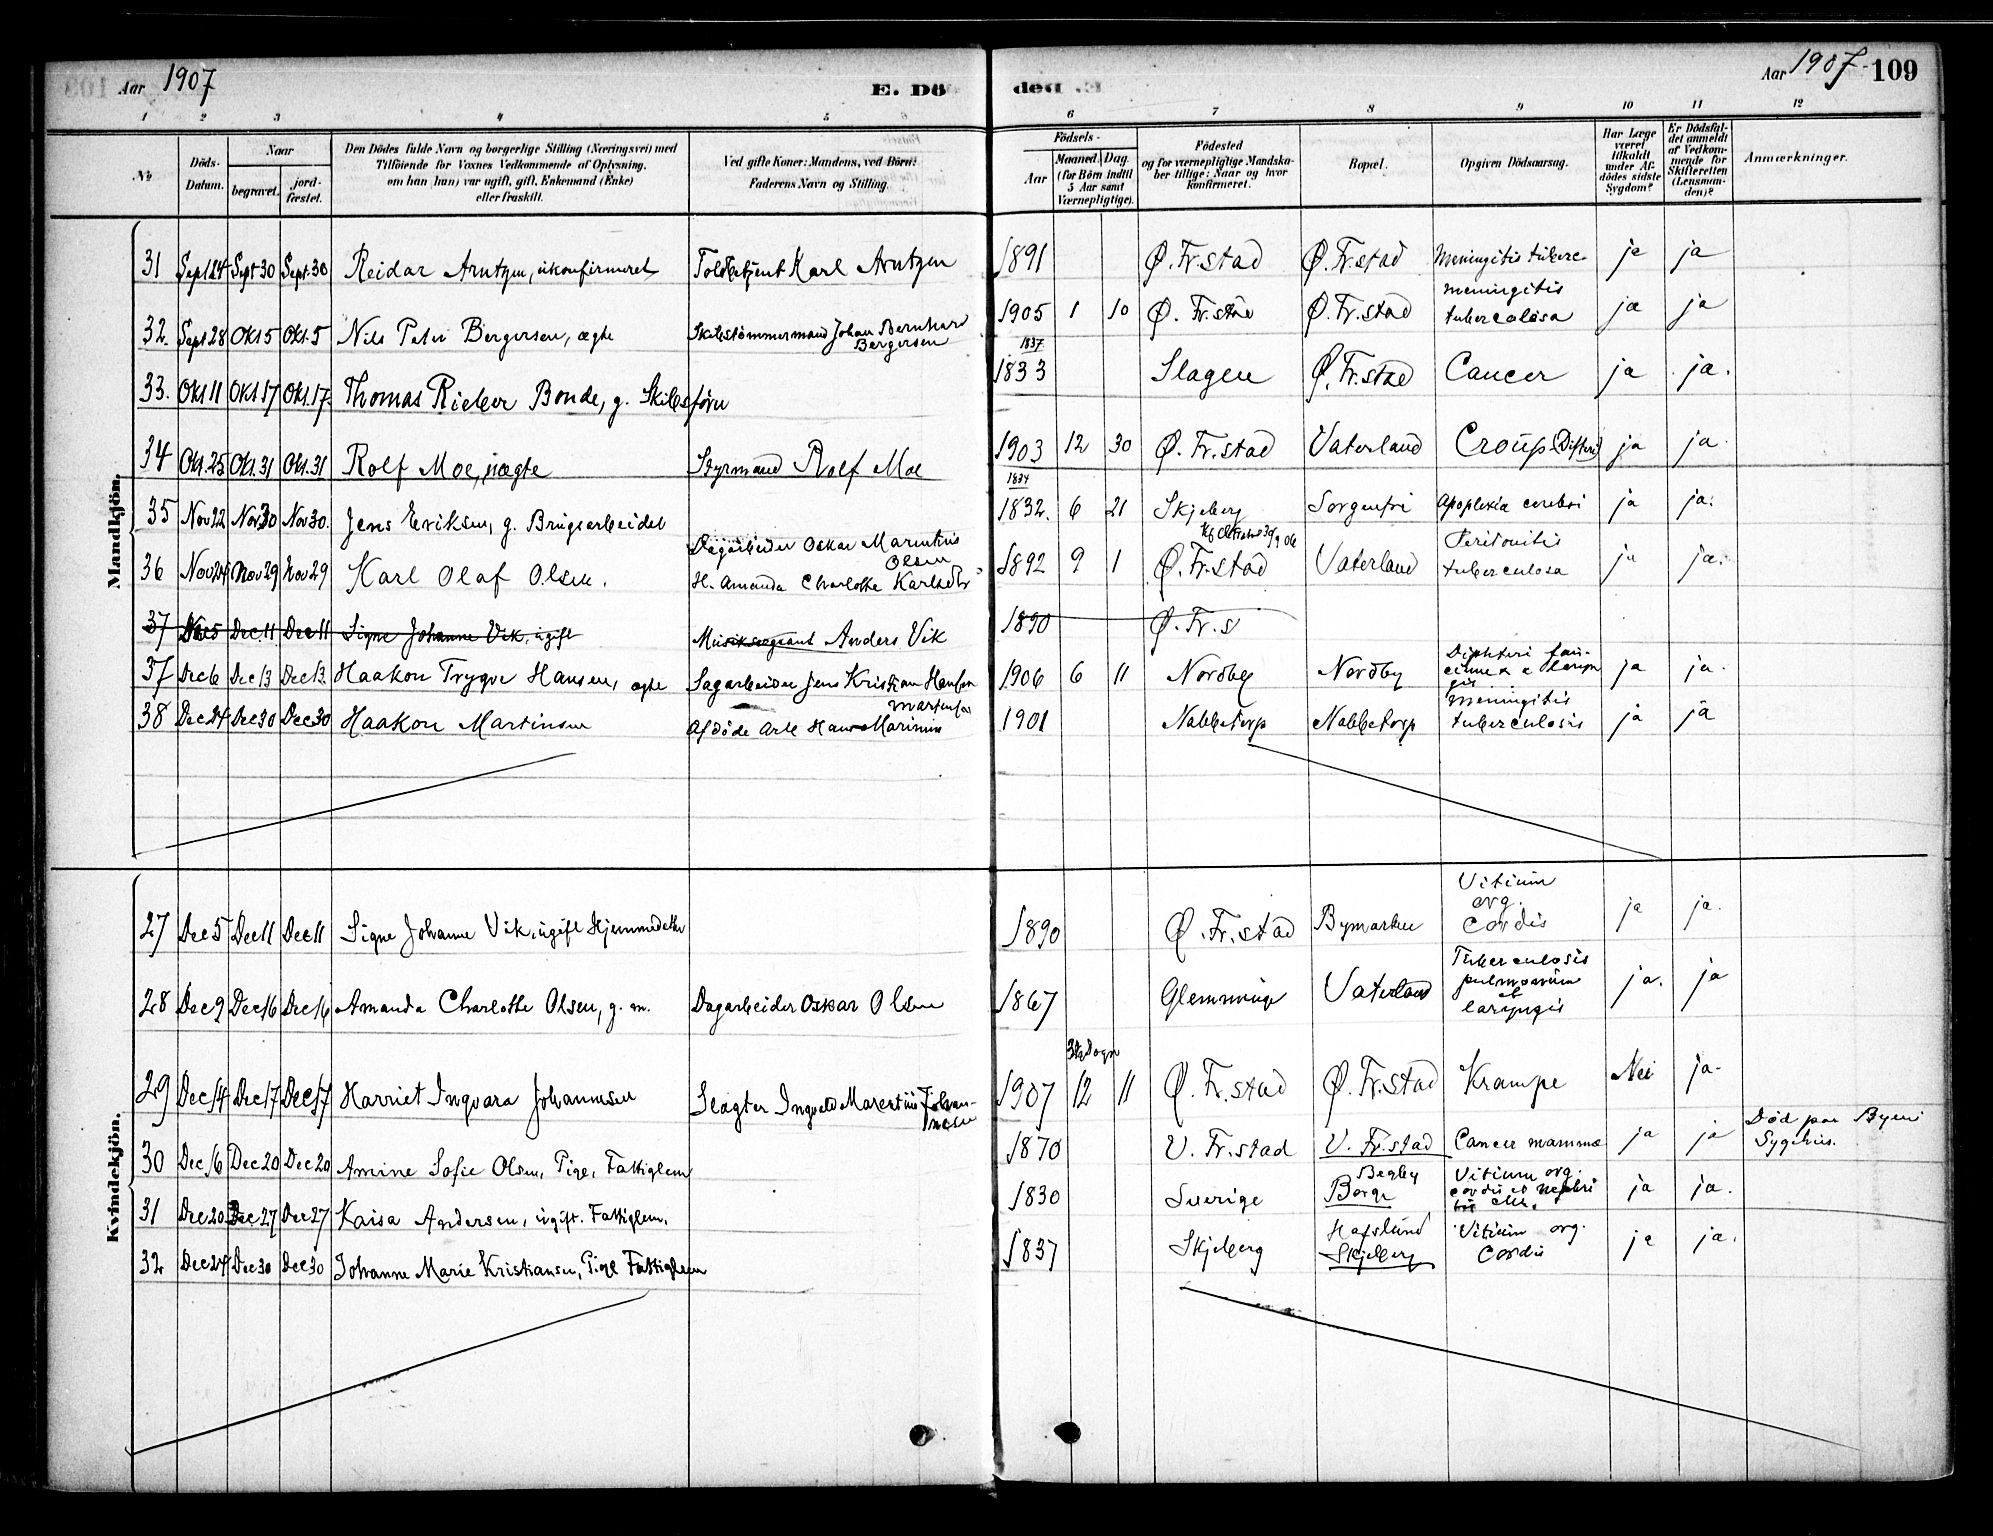 Aar 1907
E. Dö
ded
Aar 1907. 109
1 2 3 4 5 6 7 8 9 10 11 12
№
Döds-
Datum.
Naar
begravet.
jord-
fæstet.
Den Dödes fulde Navn og borgerlige Stilling (Næringsvei) med
Tilföiende for Voxnes Vedkommende af Oplysning,
om han (hun) var ugift, gift, Enkemand (Enke)
eller fraskilt.
Ved gifte Koner: Mandens, ved Börn:
Faderens Navn og Stilling.
Födsels-
Aar
Maaned. Dag.
(for Börn indtil
5 Aar samt
Værnepligtige).
Födested
og for værnepligtige Mandska-
ber tillige: Naar og hvor
konfirmeret.
Bopæl.
Opgiven Dödsaarsag.
Har Læge
været
tilkaldt
under Af-
dödes sidste
Sygdom?
Er Dödsfal-
det anmeldt
af Vedkom-
mende for
Skifteretten
(Lensman-
den)?
Anmærkninger.
Mandkjön.
31 Sept 24 Sept 30 Sept. 30 Reidar Arntzen, ukonfirmeret Toldbetjent Karl Arntzen 1891 Ø. Fr.stad Ø. Fr.stad Meningitis tuberc. ja ja
32. Sept 28 Okt 5 Okt. 5 Nils Peter Bergersen, ægte Skibstømmermand Johan Bernhard
Bergersen 1905 1 10 Ø. Fr.stad Ø. Fr.stad meningitis
tuberculosa ja ja
33. Okt 11 Okt. 17 Okt. 17. Thomas Rieber Bonde, g. Skibsfører 1837
1833 Slagen Ø. Fr.stad Cancer ja ja.
34 Okt. 25 Okt. 31 Okt. 31 Rolf Moe, uægte Styrmand Rolf Moe 1903 12 30 Ø. Fr.stad Vaterland Croup (Difteri) ja ja.
35 Nov 22 Nov 30 Nov 30. Jens Eriksen, g. Brugsarbeider 1834
1832. 6 21 Skjeberg Sorgenfri Apoplexia cerebri ja ja.
36 Nov 24 Nov 29 Nov 29 Karl Olaf Olsen. Dagarbeider Oskar Marentius
Olsen
H. Amanda Charlotte Karlsdtr 1892 9 1 Ø. Fr.stad Vaterland Peritonitis
tuberculosa ja ja.
37 Dec 5 Dec. 11 Dec 11 Signe Johanne Vik, ugift Musiksergeant Anders Vik 1890 Ø. Fr. s
37 Dec 6 Dec 13 Dec 13. Haakon Trygve Hansen, ægte Sagarbeider Jens Kristian Hansen 1906 6 11 Nordby Nordby Diphteri fau-
cium & laryn
gis ja ja.
38 Dec 24 Dec 30 Dec 30 Haakon Martinsen Afdøde Arb. Hans Marinius
Martinsen 1901 Nabbetorp Nabbetorp meningitis
tuberculosis ja ja
Kvindekjön.
27 Dec 5 Dec 11 Dec 11 Signe Johanne Vik, ugift Hjemmedatter 1890 Ø. Fr.stad Bymarken Vitium
org.
Cordis ja ja.
28 Dec 9 Dec 16 Dec 16 Amanda Charlotte Olsen, g. m. Dagarbeider Oskar Olsen 1867 Glemminge Vaterland Tuberculosis
pulmonum
et
laryngis ja. ja
29 Dec 14 Dec 17 Dec 17 Harriet Ingvara Johannesen Slagter Ingvald Marentius Johan-
nesen 1907 12 11 Ø. Fr.stad Ø. Fr.stad Krampe Nei ja.
30 Dec 16 Dec 20 Dec 20 Amine Sofie Olsen, Pige, Fattiglem 1870 V. Fr.stad V. Fr.stad Cancer mamma ja ja Død paa Byens
Sygehus.
31 Dec 20 Dec 27 Dec 27 Kaisa Andersen, ugift. Fattiglem. 1830 Sverige Begby
Borge Vitium org.
cordis et nephri
tis chr. ja ja.
32 Dec 24 Dec 30 Dec 30 Johanne Marie Kristiansen, Pige Fattiglem 1837 Skjeberg Hafslund
Skjeberg Vitium org.
Cordis ja ja.